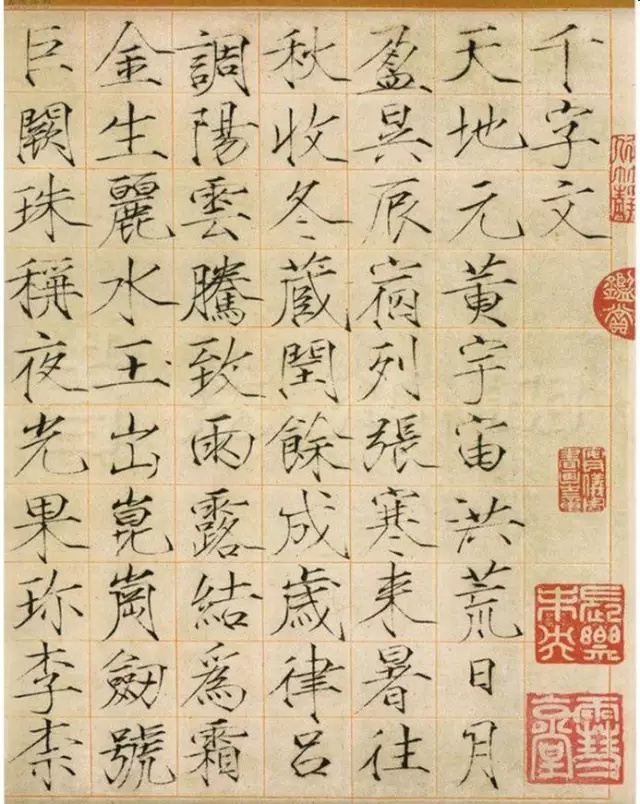 千字文
天地元黃宇宙洪荒日月
盈昃辰宿列張寒來暑往
秋收冬藏閏餘成歲律呂
調陽雲騰致雨露結為霜
金生麗水玉出崑崗劒號
巨闕珠稱夜光果珎李柰
鑑賞
安儀周書畫之章